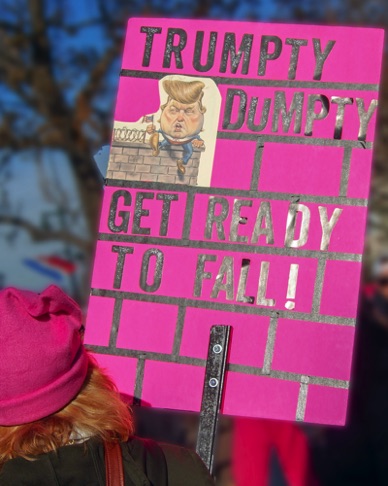 TRUMPTY
DuMPTY
GET READY
TO FALL!